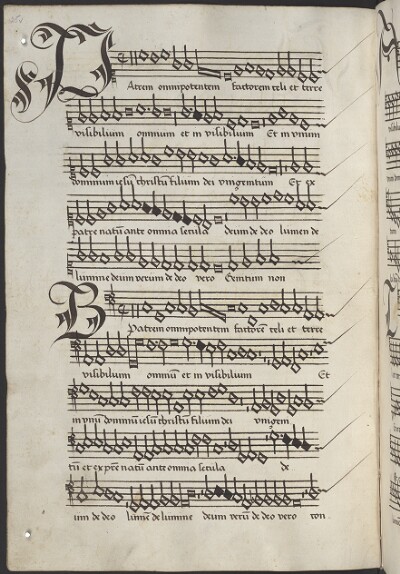 Patrem omnipotentem factorem celi et terre
visibilium omnium et in visibilium Et in unum
dominum iesu christu filium dei unigenitum Et ex
patre natu ante omnia secula deum de deo lumen de
lumine deum verum de deo vero Genitum non
B
Patrem omnipotentem factore celi et terre
visibilium omniu et in visibilium Et
in unu dominu iesu christu filium dei unigeni
tu et ex pre natu ante omnia secula de
um de deo lume de lumine deum veru de deo vero con